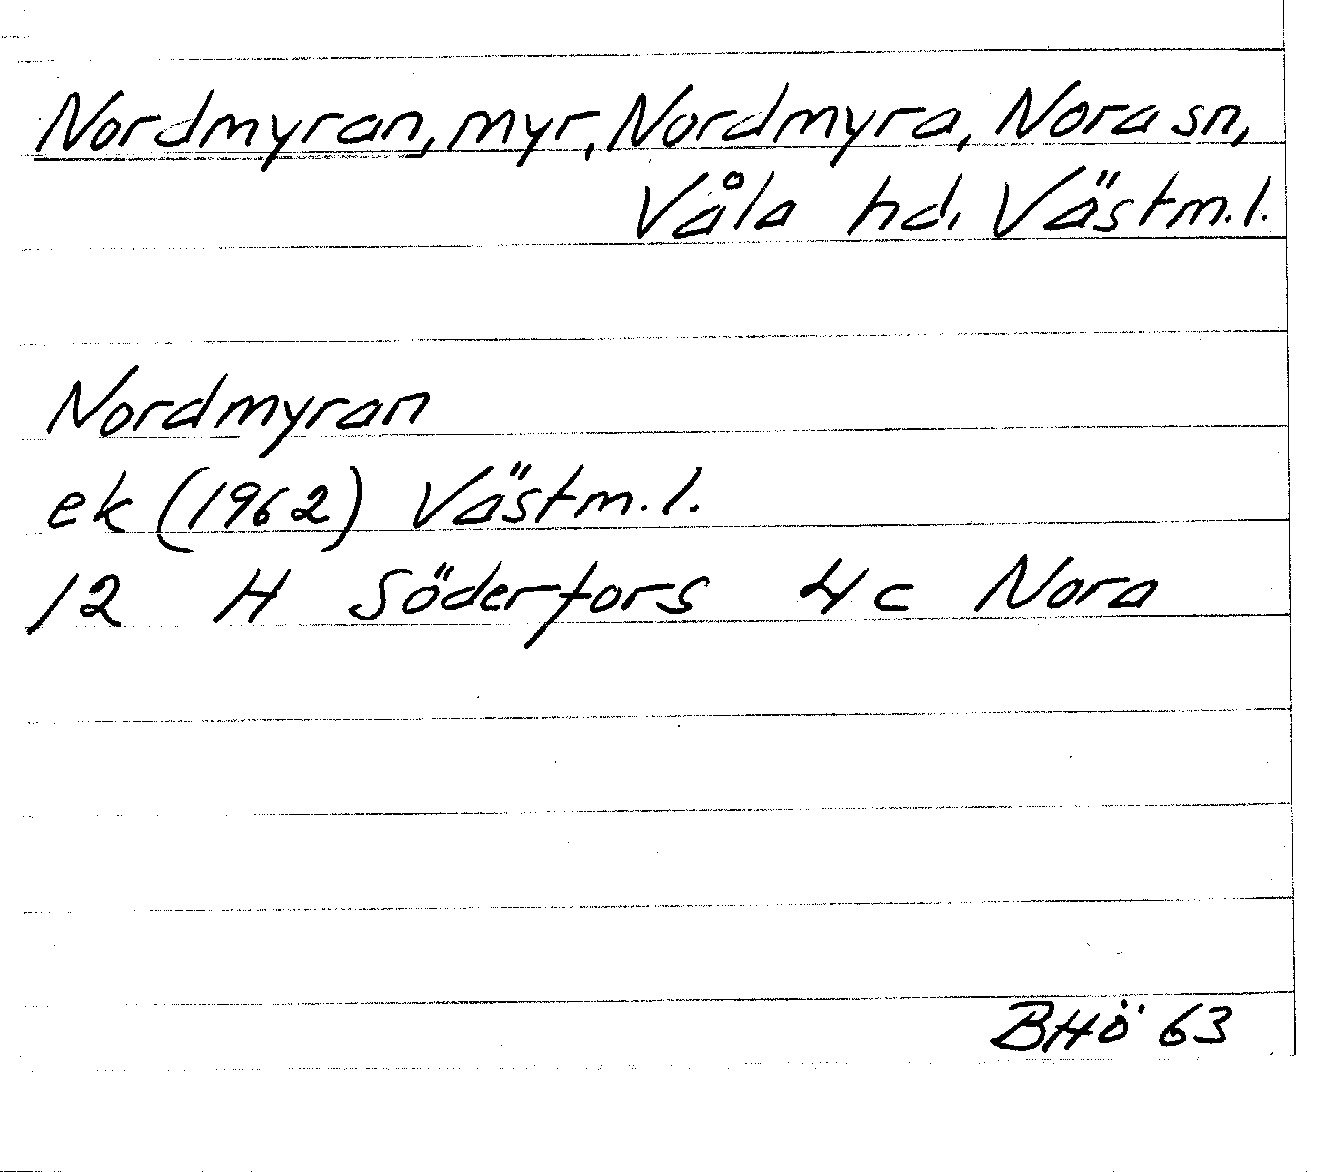 Nordmyran, myr, Nordmyra, Nora sn,
Våla hd, Västm.l.
Nordmyran
ek (1962) Västm.l.
12 H Söderfors 4c Nora
BHÖ 63